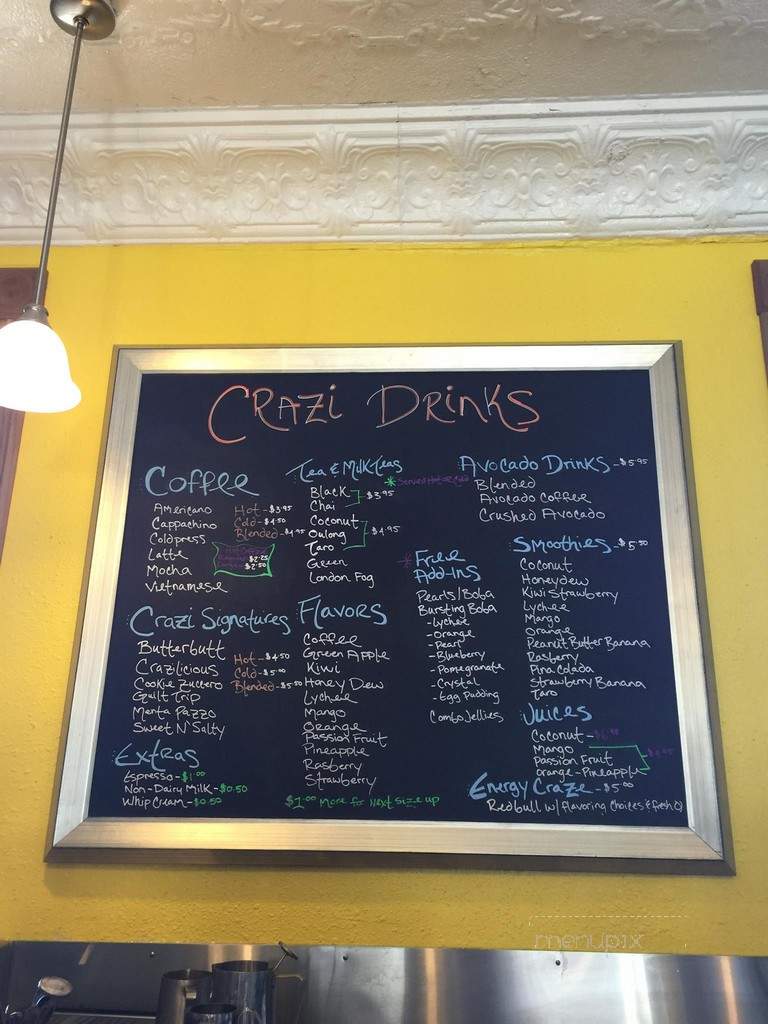 Crazi Drinks
Coffee
Americano
Cappachino
Coldpress
Latte
Mocha
Vietnamese
Hot - $3.95
Cold - $4.50
Blended - $4.95
$2.25
$2.50
Crazi Signatures
Butterbutt
Crazilicious
Cookie Zuccero
Guilt Trip
Menta Pazzo
Sweet N' Salty
Hot - $4.50
Cold - $5.00
Blended - $5.50
Extras
Espresso - $1.00
Non-Dairy Milk - $0.50
Whip Cream - $0.50
Tea & Milk Teas
* Served Hot or Cold
Black
Chai
$3.95
Coconut
Oulong
Taro
$4.95
Green
London Fog
Flavors
Coffee
Green Apple
Kiwi
Honey Dew
Lychee
Mango
Orange
Passion Fruit
Pineapple
Rasberry
Strawberry
$1.00 More for next size up
* Free Add-Ins
Pearls/Boba
Bursting Boba
- Lychee
- Orange
- Pearl
- Blueberry
- Pomegranate
- Crystal
- Egg Pudding
Combo Jellies
Avocado Drinks - $5.95
Blended
Avocado Coffee
Crushed Avocado
Smoothies - $5.50
Coconut
Honeydew
Kiwi Strawberry
Lychee
Mango
Orange
Peanut Butter Banana
Rasberry
Pina Colada
Strawberry Banana
Taro
Juices
Coconut
Mango
Passion Fruit
Orange-Pineapple
Energy Craze - $5.00
Redbull w/ Flavoring Choices & fresh
menupix